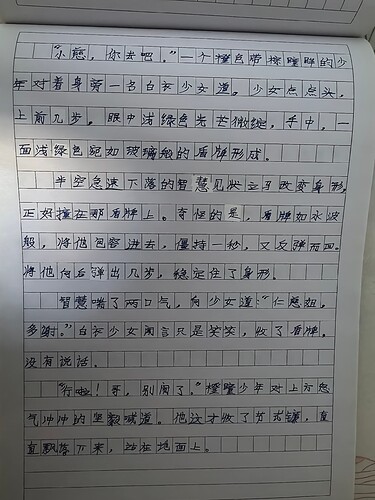 “小慈，你去吧。”一个橙色带棕瞳眸的少
年对着身旁一名白衣少女道。少女点点头，
上前几步。眼中浅绿色光芒微绽，手中，一
面浅绿色宛如玻璃般的盾牌形成。
半空急速下落的智慧见状立马改变身形，
正好撞在那盾牌上。奇怪的是，盾牌如水波
般，将他包容进去，僵持一秒，又反弹而回。
将他向后弹出几步，稳定住了身形。
智慧喘了两口气，向少女道：“仁慈姐，
多谢。”白衣少女闻言只是笑笑，收了盾牌。
没有说话。
“行啦！哥，别闹了。”橙瞳少年对上方怒
气冲冲的坚毅喊道。他这才收了，直
直飘落下来，站在地面上。